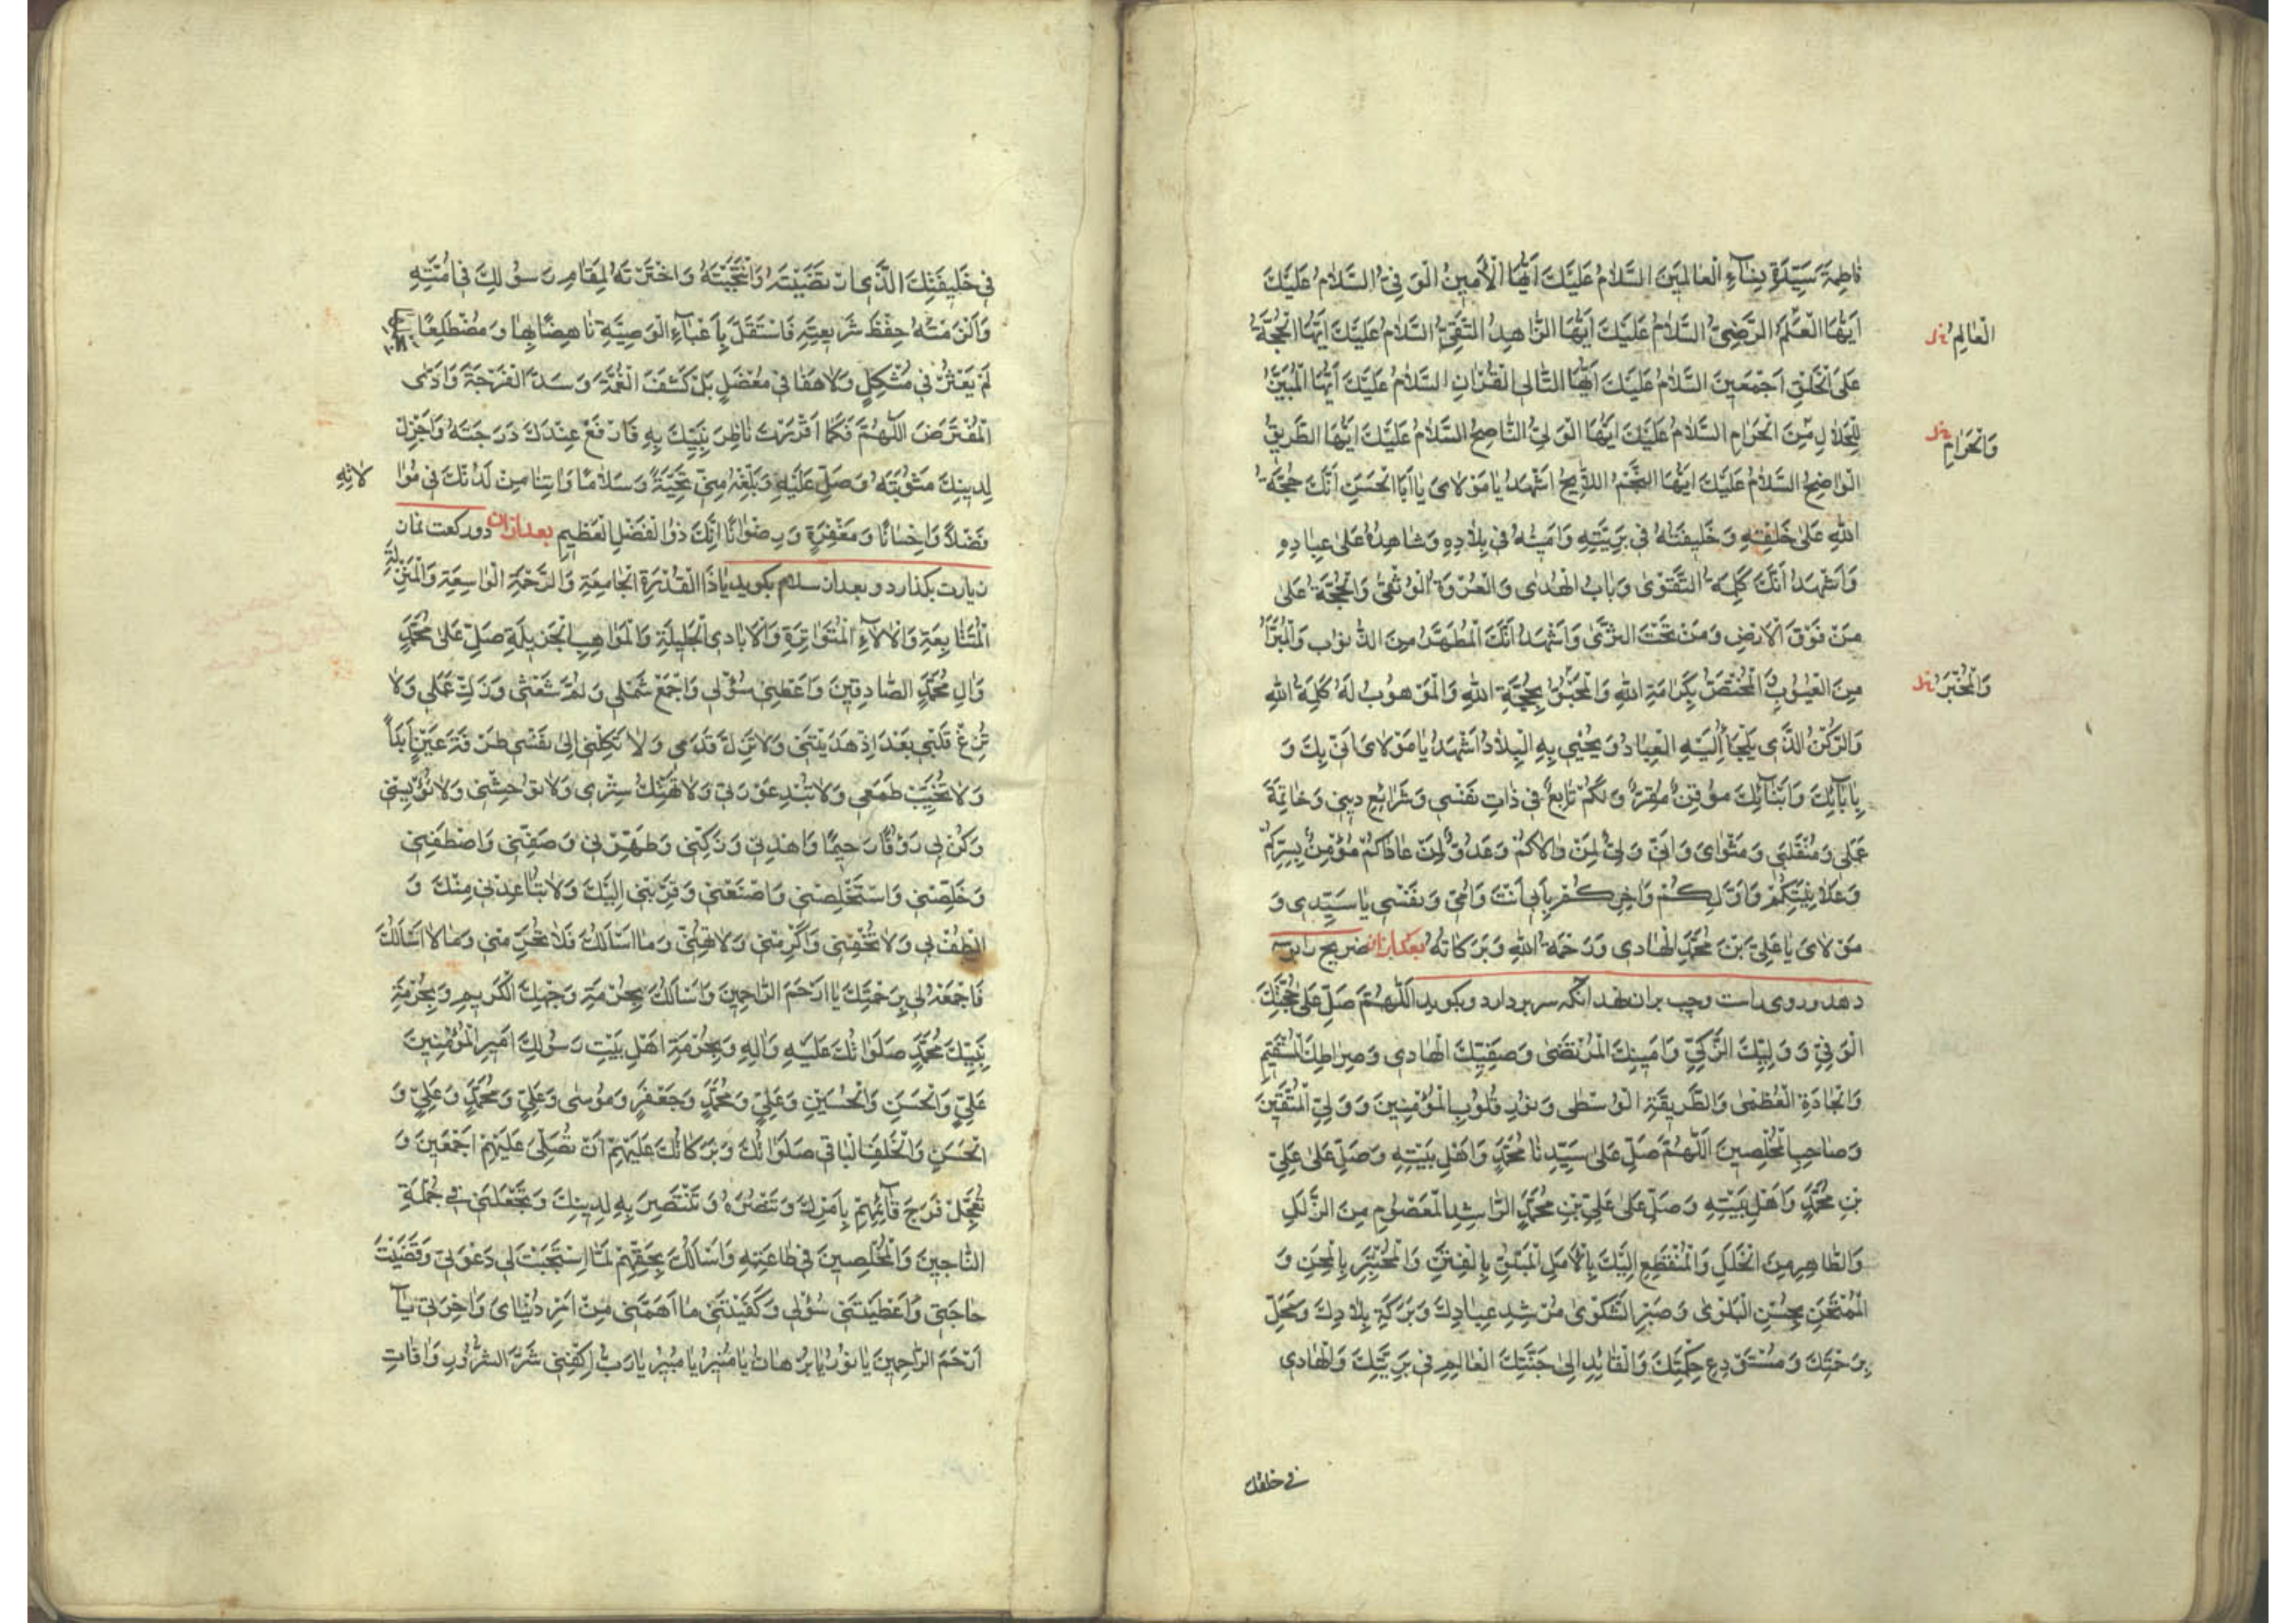 فَاطِمَةَ سَيِّدَةِ نِسَآءِ الْعَالَمِينَ السَّلَامُ عَلَيْكَ اَيُّهَا الْاَمِينُ الْوَفِيُّ السَّلَامُ عَلَيْكَ
اَيُّهَا الْعَلَمُ الرَّضِيُّ السَّلَامُ عَلَيْكَ اَيُّهَا الزَّاهِدُ التَّقِيُّ السَّلَامُ عَلَيْكَ اَيُّهَا الْحُجَّةُ
الْعَالِمُ
عَلَى الْخَلْقِ اَجْمَعِينَ السَّلَامُ عَلَيْكَ اَيُّهَا التَّالِى الْقُرْانِ السَّلَامُ عَلَيْكَ اَيُّهَا الْمُبَيِّنُ
لِلْحَلَالِ مِنَ الْحَرَامِ السَّلَامُ عَلَيْكَ اَيُّهَا الْوَلِيُّ النَّاصِحُ السَّلَامُ عَلَيْكَ اَيُّهَا الطَّرِيقُ
وَالْحَرَامِ
الْوَاضِحُ السَّلَامُ عَلَيْكَ اَيُّهَا النَّجْمُ اللَّايِحُ اَشْهَدُ يَا مَوْلَاىَ يَا اَبَا الْحَسَنِ اَنَّكَ حُجَّةُ
اللهِ عَلَى خَلْقِهِ وَخَلِيفَتُهُ فِي بَرِيَّتِهِ وَاَمِينُهُ فِي بِلَادِهِ وَشَاهِدُهُ عَلَى عِبَادِهِ
وَاَشْهَدُ اَنَّكَ كَلِمَةُ التَّقْوَى وَبَابُ الْهُدَى وَالْعُرْوَةُ الْوُثْقَى وَالْحُجَّةُ عَلَى
مَنْ فَوْقَ الْاَرْضِ وَمَنْ تَحْتَ الثَّرَى وَاَشْهَدُ اَنَّكَ الْمُطَهَّرُ مِنَ الذُّنُوبِ وَالْمُبَرَّاُ
مِنَ الْعُيُوبِ الْمُخْتَصُّ بِكَرَامَةِ اللهِ وَالْمَحْبُوُّ بِحُجَّةِ اللهِ وَالْمَوْهُوبُ لَهُ كَلِمَةُ اللهِ
وَالرُّكْنُ الَّذِى يَلْجَأُ اِلَيْهِ الْعِبَادُ وَيُحْيَى بِهِ الْبِلَادُ اَشْهَدُ يَا مَوْلَاىَ اَنِّى بِكَ وَ
بِاٰبَآئِكَ وَاَبْنَآئِكَ مُوقِنٌ مُقِرٌّ وَلَكُمْ تَابِعٌ فِي ذَاتِ نَفْسِي وَشَرَايِعِ دِينِي وَخَاتِمَةِ
عَمَلِي وَمُنْقَلَبِي وَمَثْوَاىَ وَاَنِّي وَلِيٌّ لِمَنْ وَالَاكُمْ وَعَدُوٌّ لِمَنْ عَادَاكُمْ مُؤْمِنٌ بِسِرِّكُمْ
وَعَلَانِيَتِكُمْ وَاَوَّلِكُمْ وَاٰخِرِكُمْ بِاَبِي اَنْتَ وَاُمِّي وَنَفْسِي يَا سَيِّدِى وَ
مَوْلَاىَ يَا عَلِيَّ بْنَ مُحَمَّدٍ الْهَادِى وَرَحْمَةُ اللهِ وَبَرَكَاتُهُ بعد ازان ضريح را بوسه
دهد و روى راست و چپ بران نهد انكه سر بردارد و بگويد اَللّٰهُمَّ صَلِّ عَلَى حُجَّتِكَ
الْوَفِيِّ وَوَلِيِّكَ الزَّكِيِّ وَاَمِينِكَ الْمُرْتَضَى وَصَفِيِّكَ الْهَادِى وَصِرَاطِكَ الْمُسْتَقِيمِ
وَالْجَادَّةِ الْعُظْمَى وَالطَّرِيقَةِ الْوُسْطَى وَنُورِ قُلُوبِ الْمُؤْمِنِينَ وَوَلِيِّ الْمُتَّقِينَ
وَصَاحِبِ الْمُخْلِصِينَ اَللّٰهُمَّ صَلِّ عَلَى سَيِّدِنَا مُحَمَّدٍ وَاَهْلِ بَيْتِهِ وَصَلِّ عَلَى عَلِيِّ
بْنِ مُحَمَّدٍ وَاَهْلِ بَيْتِهِ وَصَلِّ عَلَى عَلِيِّ بْنِ مُحَمَّدٍ الرَّاشِدِ الْمَعْصُومِ مِنَ الزَّلَلِ
وَالطَّاهِرِ مِنَ الْخَلَلِ وَالْمُنْقَطِعِ اِلَيْكَ بِالْاَمَلِ الْمَبْلُوِّ بِالْفِتَنِ وَالْمُخْتَبَرِ بِالْمِحَنِ وَ
الْمُمْتَحَنِ بِحُسْنِ الْبَلْوَى وَصَبْرِ الشَّكْوَى مُرْشِدِ عِبَادِكَ وَبَرَكَةِ بِلَادِكَ وَمَحَلِّ
رَحْمَتِكَ وَمُسْتَوْدَعِ حِكْمَتِكَ وَالْقَائِدِ اِلَى جَنَّتِكَ الْعَالِمِ فِي بَرِيَّتِكَ وَالْهَادِى
فى خليقتك
فِي خَلِيقَتِكَ الَّذِى ارْتَضَيْتَهُ وَانْتَجَبْتَهُ وَاخْتَرْتَهُ لِمَقَامِ رَسُولِكَ فِي اُمَّتِهِ
وَاَلْزَمْتَهُ حِفْظَ شَرِيعَتِهِ فَاسْتَقَلَّ بِاَعْبَآءِ الْوَصِيَّةِ نَاهِضًا بِهَا وَمُضْطَلِعًا
لَمْ يَعْثُرْ فِي مُشْكِلٍ وَلَا هَفَا فِي مُعْضِلٍ بَلْ كَشَفَ الْغُمَّةَ وَسَدَّ الْفُرْجَةَ وَادَّى
الْمُفْتَرَضَ اَللّٰهُمَّ فَكَمَا اَقْرَرْتَ نَاظِرَ نَبِيِّكَ بِهِ فَارْفَعْ عِنْدَكَ دَرَجَتَهُ وَاَجْزِلْ
لَدَيْكَ مَثُوبَتَهُ وَصَلِّ عَلَيْهِ وَبَلِّغْهُ مِنِّي تَحِيَّةً وَسَلَامًا وَاٰتِنَا مِنْ لَدُنْكَ فِي مُوَا
لَاتِهِ
فَضْلًا وَاِحْسَانًا وَمَغْفِرَةً وَرِضْوَانًا اِنَّكَ ذُو الْفَضْلِ الْعَظِيمِ بعد ازان دو ركعت نماز
زيارت بگذارد و بعد از سلام بگويد يَا ذَا الْقُدْرَةِ الْجَامِعَةِ وَالرَّحْمَةِ الْوَاسِعَةِ وَالْمِنَنِ
الْمُتَتَابِعَةِ وَالْاٰلَآءِ الْمُتَوَاتِرَةِ وَالْاَيَادِى الْجَلِيلَةِ وَالْمَوَاهِبِ الْجَزِيلَةِ صَلِّ عَلَى مُحَمَّدٍ
وَاٰلِ مُحَمَّدٍ الصَّادِقِينَ وَاَعْطِنِي سُؤْلِي وَاجْمَعْ شَمْلِي وَلُمَّ شَعَثِي وَزَكِّ عَمَلِي وَلَا
تُزِغْ قَلْبِي بَعْدَ اِذْ هَدَيْتَنِي وَلَا تُزِلَّ قَدَمِي وَلَا تَكِلْنِي اِلَى نَفْسِي طَرْفَةَ عَيْنٍ اَبَدًا
وَلَا تُخَيِّبْ طَمَعِي وَلَا تُبْدِ عَوْرَتِي وَلَا تَهْتِكْ سِتْرِى وَلَا تُوحِشْنِي وَلَا تُؤْيِسْنِي
وَكُنْ لِي رَؤُفًا رَحِيمًا وَاهْدِنِي وَزَكِّنِي وَطَهِّرْنِي وَصَفِّنِي وَاصْطَفِنِي
وَخَلِّصْنِي وَاسْتَخْلِصْنِي وَاصْنَعْنِي وَقَرِّبْنِي اِلَيْكَ وَلَا تُبَاعِدْنِي مِنْكَ وَ
الْطُفْ بِي وَلَا تُجْفِنِي وَاَكْرِمْنِي وَلَا تُهِنِّي وَمَا اَسْاَلُكَ فَلَا تَحْرِمْنِي وَمَا لَا اَسْاَلُكَ
فَاجْمَعْهُ لِي بِرَحْمَتِكَ يَا اَرْحَمَ الرَّاحِمِينَ وَاَسْاَلُكَ بِحُرْمَةِ وَجْهِكَ الْكَرِيمِ وَبِحُرْمَةِ
نَبِيِّكَ مُحَمَّدٍ صَلَوَاتُكَ عَلَيْهِ وَاٰلِهِ وَبِحُرْمَةِ اَهْلِ بَيْتِ رَسُولِكَ اَمِيرِ الْمُؤْمِنِينَ
عَلِيٍّ وَالْحَسَنِ وَالْحُسَيْنِ وَعَلِيٍّ وَمُحَمَّدٍ وَجَعْفَرٍ وَمُوسَى وَعَلِيٍّ وَمُحَمَّدٍ وَعَلِيٍّ وَ
الْحَسَنِ وَالْخَلَفِ الْبَاقِي صَلَوَاتُكَ وَبَرَكَاتُكَ عَلَيْهِمْ اَنْ تُصَلِّيَ عَلَيْهِمْ اَجْمَعِينَ وَ
تُعَجِّلَ فَرَجَ قَآئِمِهِمْ بِاَمْرِكَ وَتَنْصُرَهُ وَتَنْتَصِرَ بِهِ لِدِينِكَ وَتَجْعَلَنِي فِي جُمْلَةِ
النَّاجِينَ وَالْمُخْلِصِينَ فِي طَاعَتِهِ وَاَسْاَلُكَ بِحَقِّهِمْ لَمَّا اسْتَجَبْتَ لِي دَعْوَتِي وَقَضَيْتَ
حَاجَتِي وَاَعْطَيْتَنِي سُؤْلِي وَكَفَيْتَنِي مَا اَهَمَّنِي مِنْ اَمْرِ دُنْيَاىَ وَاٰخِرَتِي يَآ
اَرْحَمَ الرَّاحِمِينَ يَا نُورُ يَا بُرْهَانُ يَا مُنِيرُ يَا مُبِينُ يَا رَبِّ اكْفِنِي شَرَّ الشُّرُورِ وَاٰفَاتِ